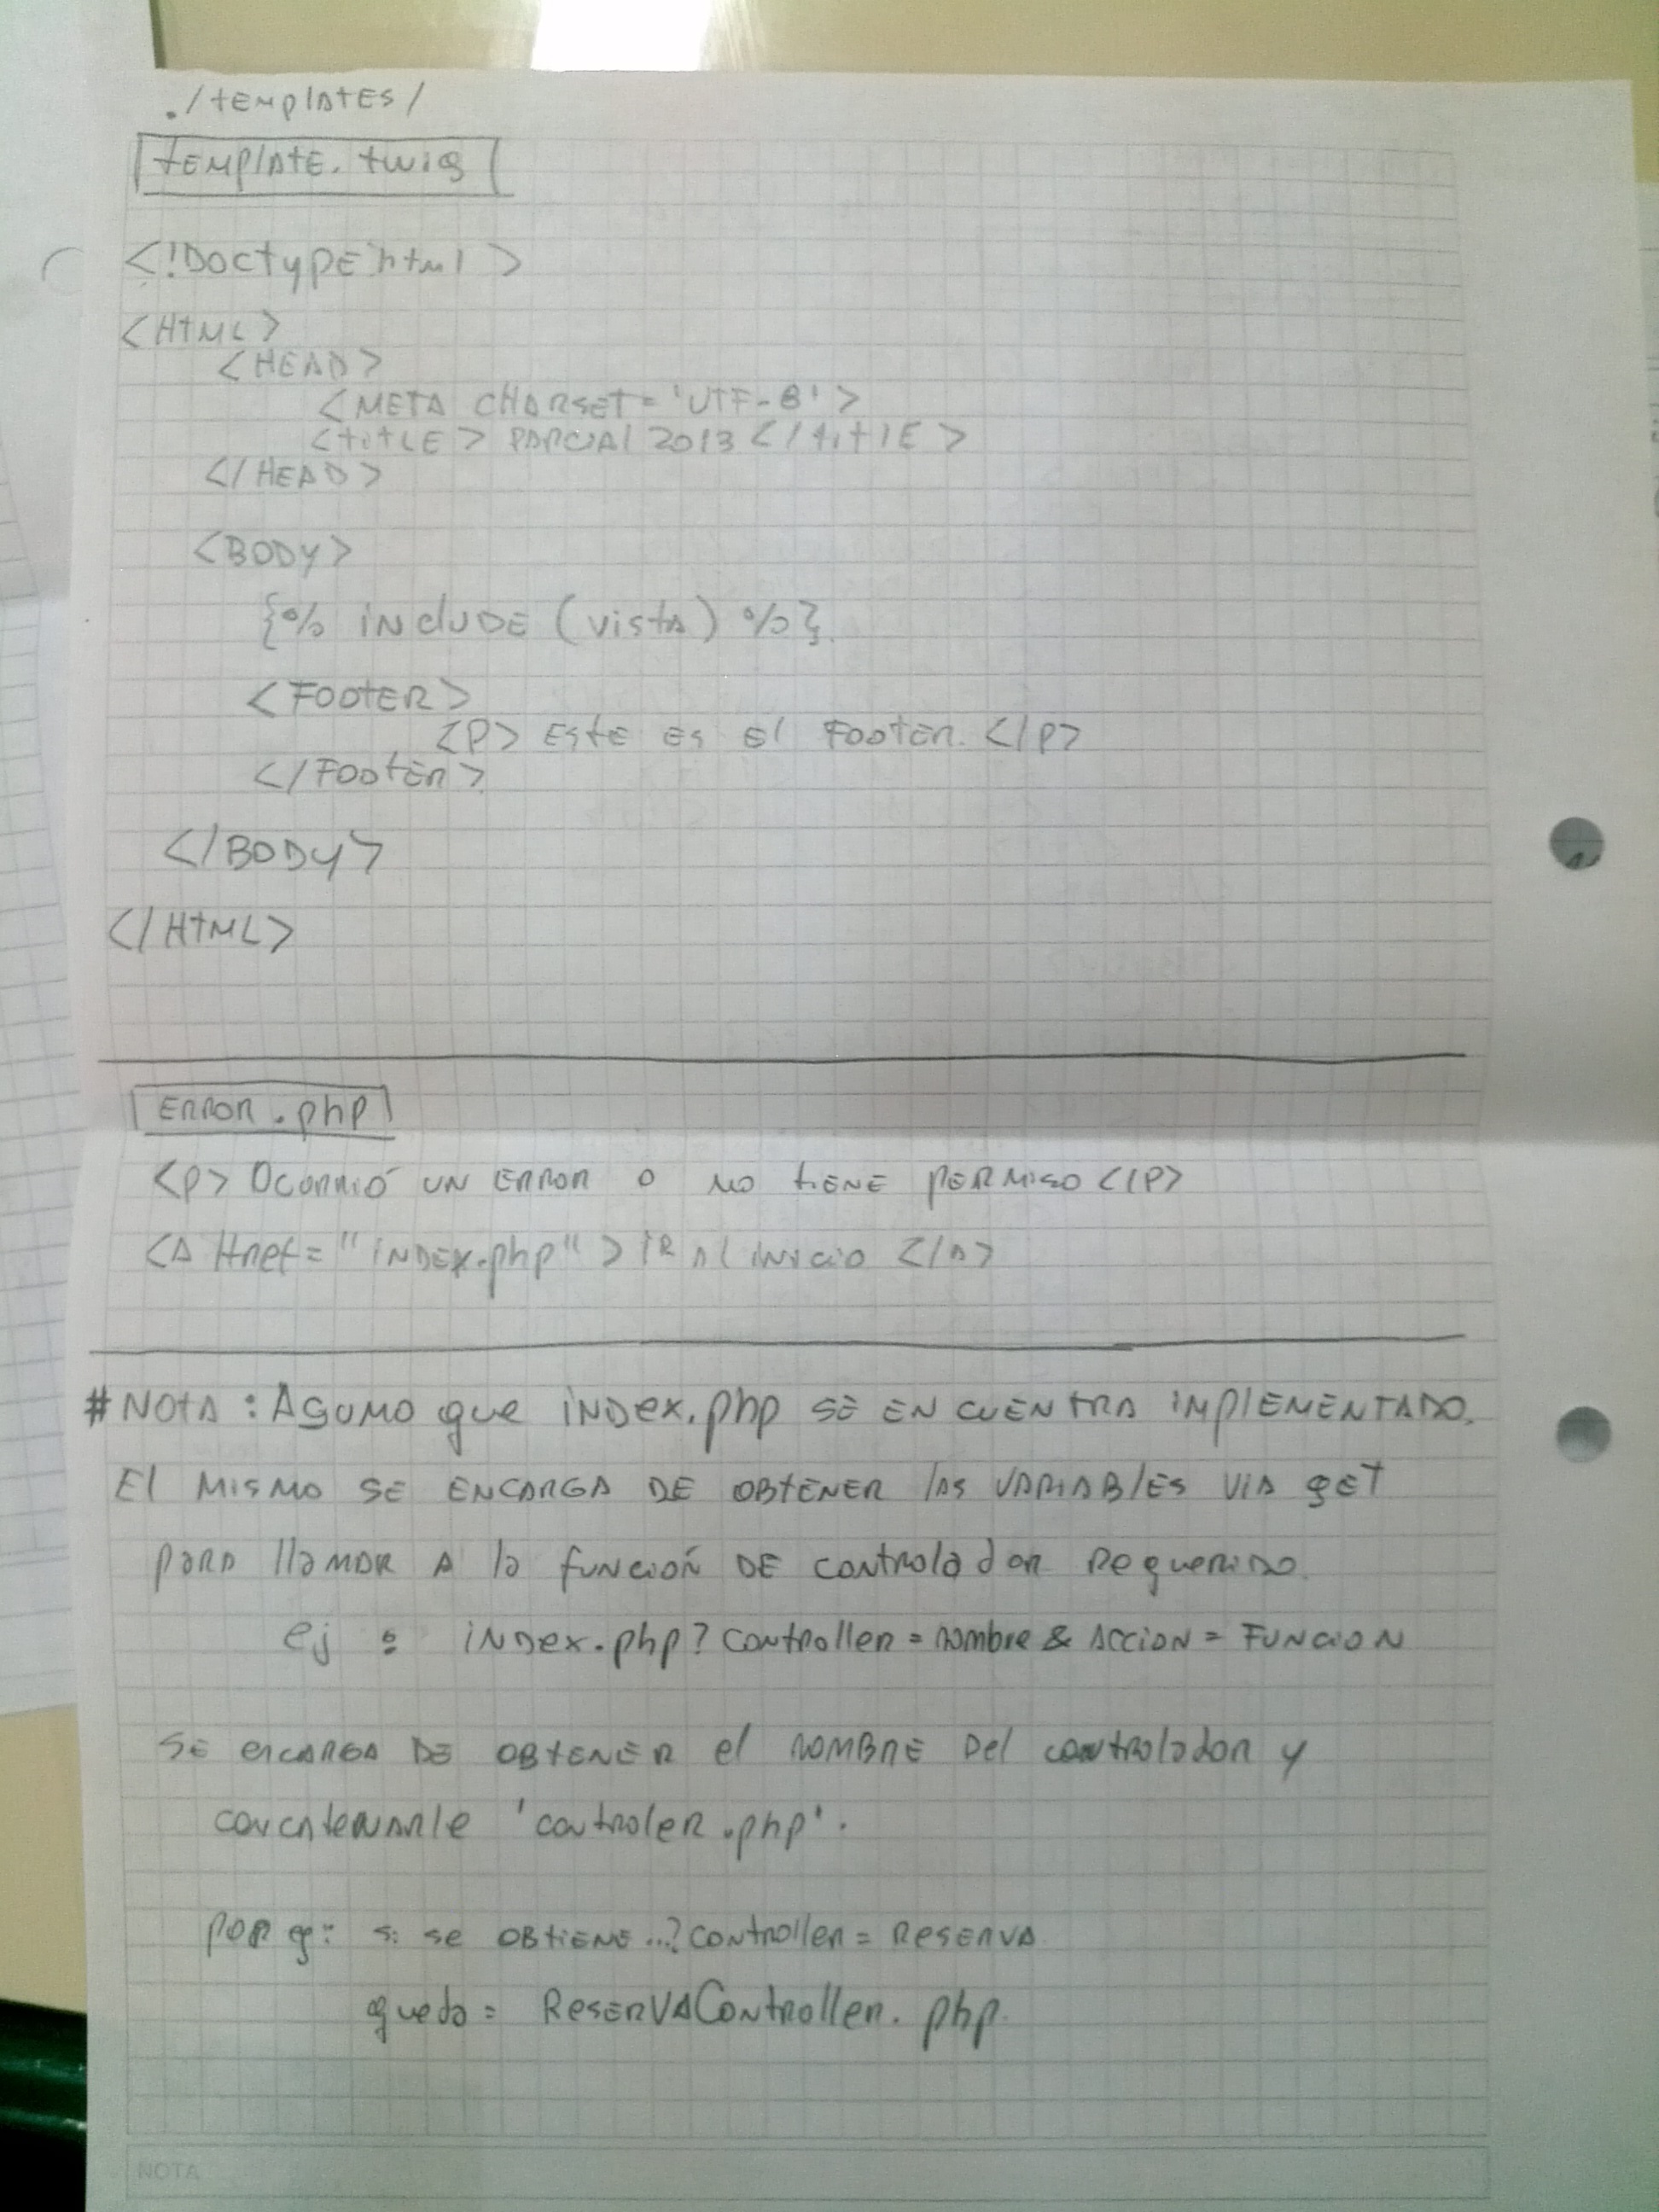 ./templates/
template.twig
<!Doctype html>
<HTML>
<HEAD>
<META CHARSET='UTF-8'>
<title> PARCIAL 2013 </title>
</HEAD>
<BODY>
{% include (vista) %}
<FOOTER>
<P> Este es el Footer. </P>
</Footer>
</BODY>
</HTML>
ERROR.php
<p> Ocurrió un error o no tiene permiso </P>
<A Href="index.php"> IR al inicio </A>
#NOTA: Asumo que index.php se encuentra implementado.
El mismo se encarga de obtener las variables via get
para llamar a la función de controlador requerido.
ej: index.php?controller=nombre & accion = funcion
se encarga de obtener el nombre del controlador y
concatenarle 'controler.php'.
por ej: si se obtiene...?controller = Reserva
queda = ReservaController.php
NOTA